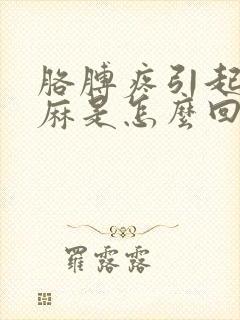 胳膊疼引起
麻是怎麼回
羅露露